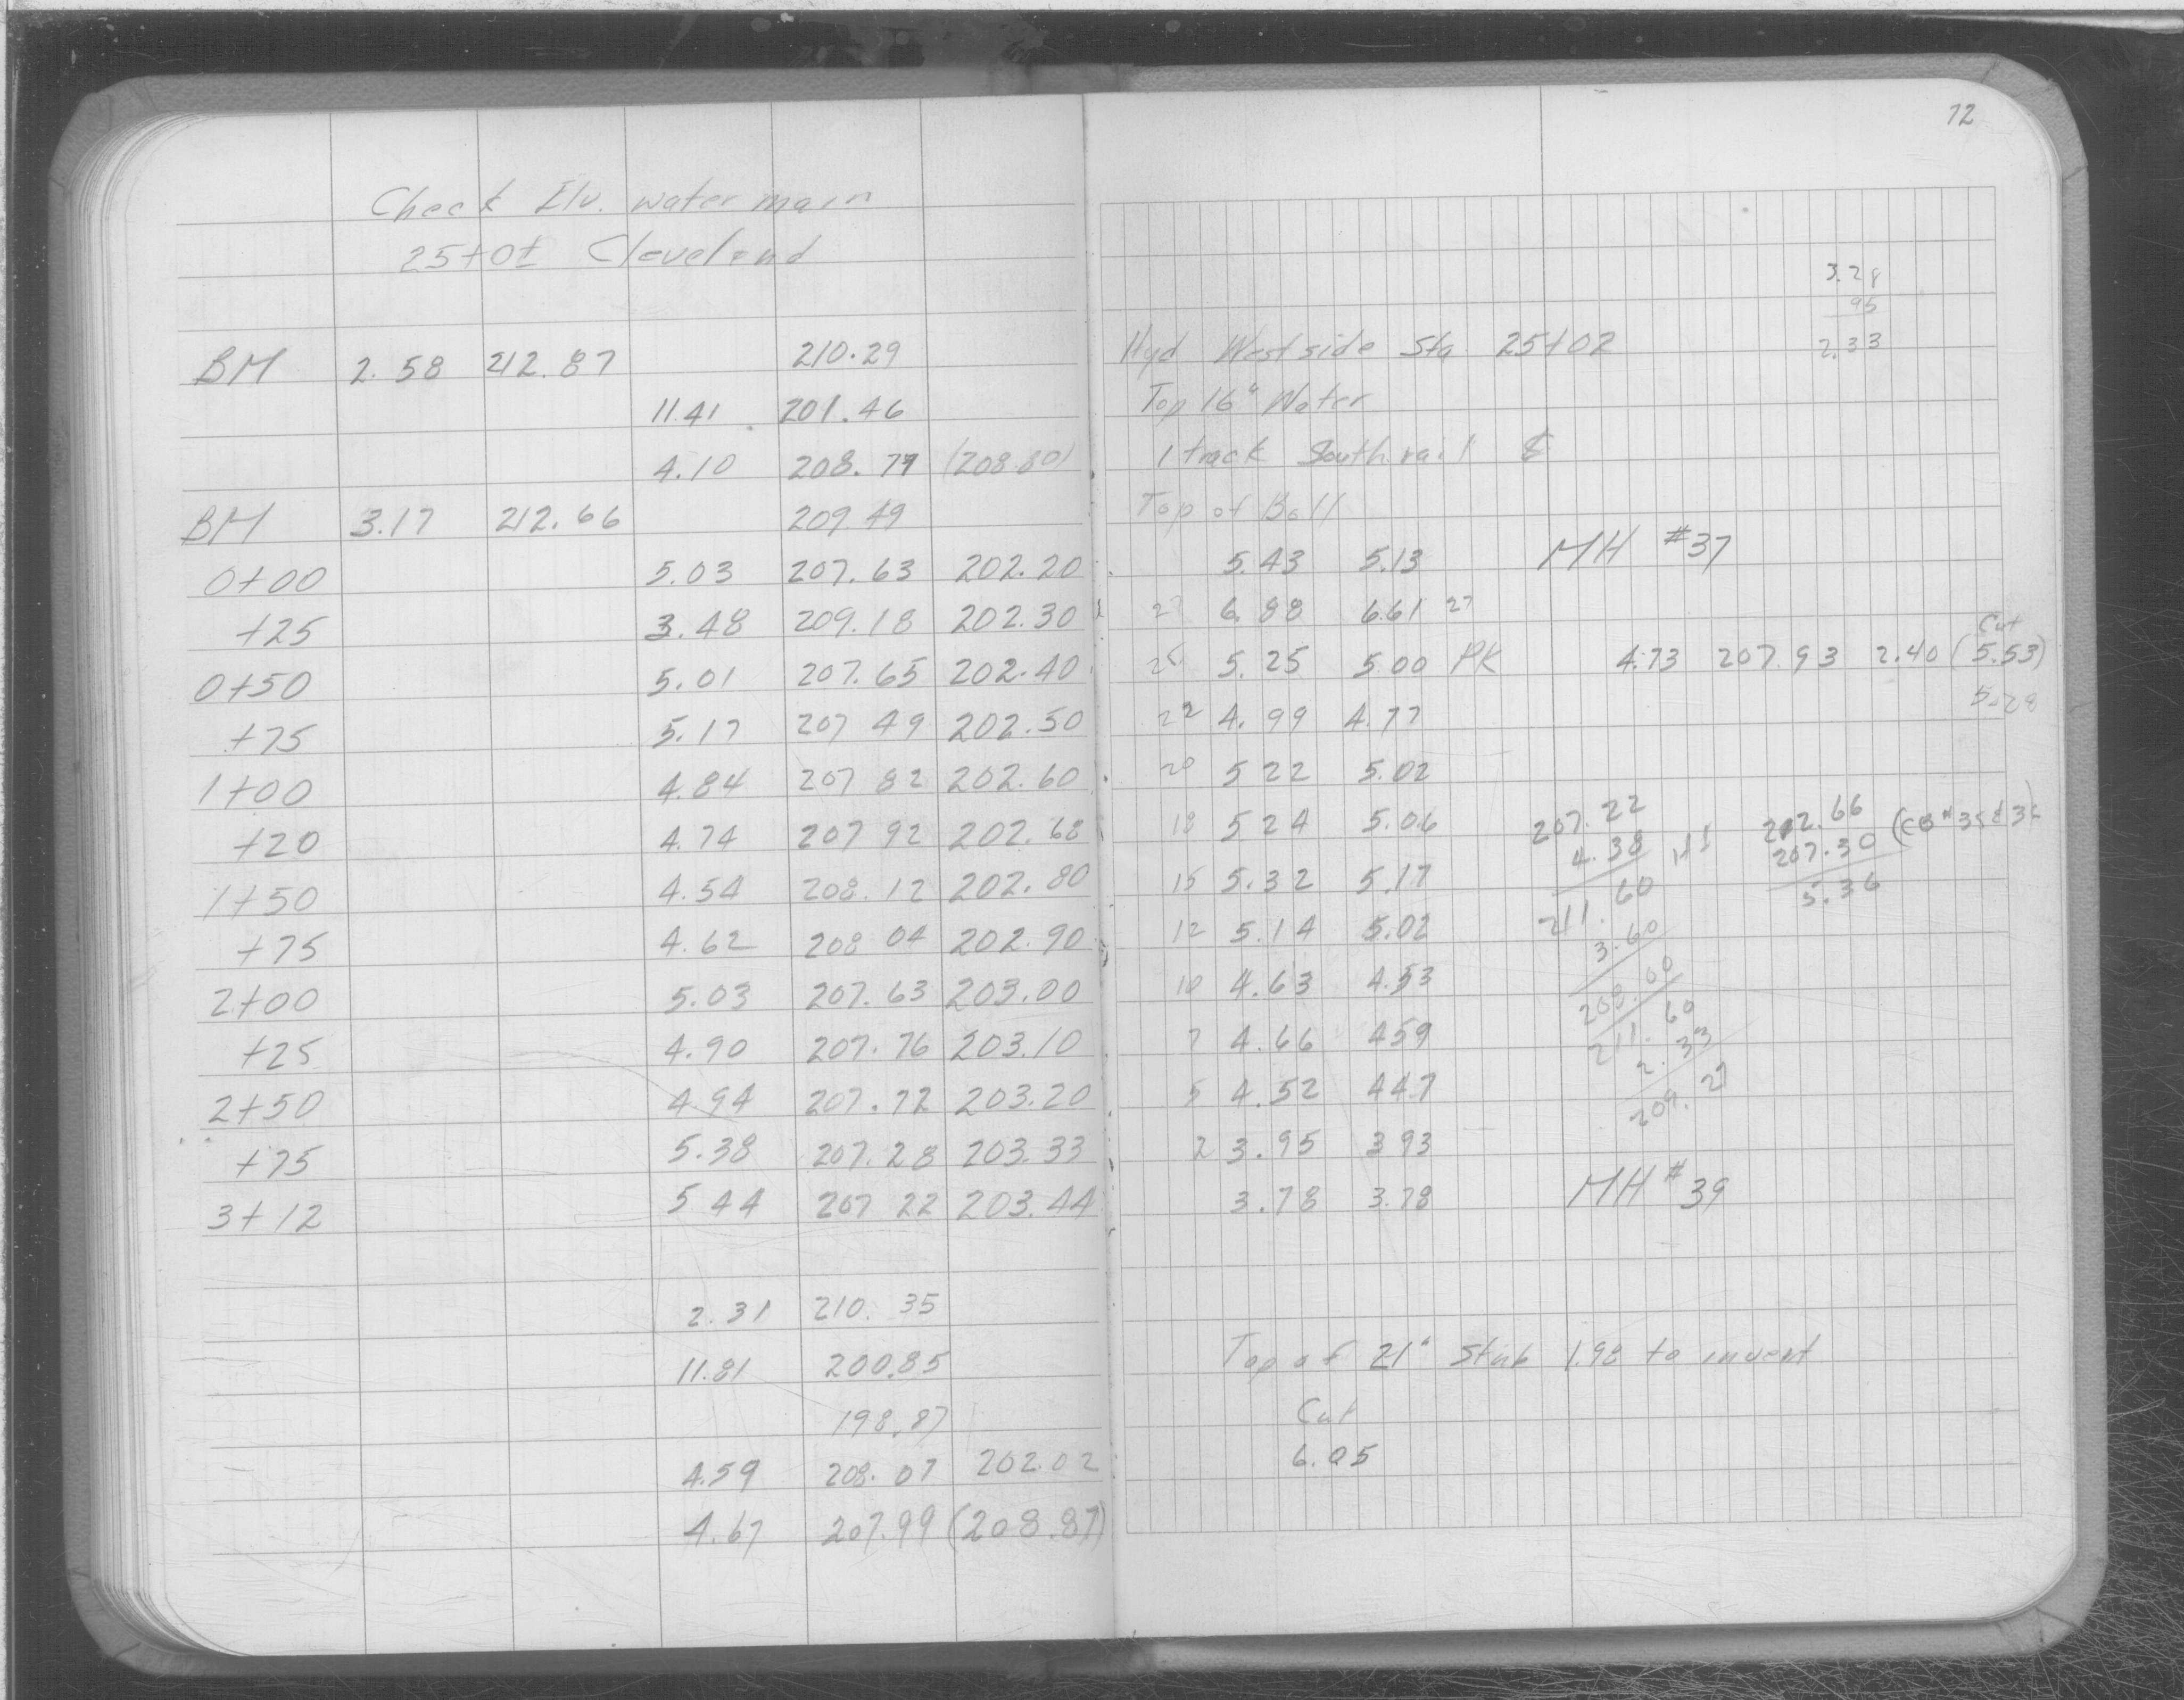 72
Check Elv. water main
25+0± Cleveland
3.28
95
2.33
BM 2.58 212.87 210.29 Hyd West side Sta 25+02
11.41 201.46 Top 16" Water
4.10 208.77 (208.80) 1 track South rail
BM 3.17 212.66 209.49 Top of Boll
0+00 5.03 207.63 202.20 5.43 5.13 MH #37
+25 3.48 209.18 202.30 27 6.88 6.61 27
Cut
0+50 5.01 207.65 202.40 25 5.25 5.00 PK 4.73 207.93 2.40 (5.53)
5.28
+75 5.17 207 49 202.50 22 4.99 4.77
1+00 4.84 207 82 202.60 20 5 22 5.02
+20 4.74 207 92 202.68 18 5 24 5.06
1+50 4.54 208.12 202.80 15 5.32 5.17
+75 4.62 208 04 202.90 12 5.14 5.02
2+00 5.03 207.63 203.00 10 4.63 4.53
+25 4.90 207.76 203.10 7 4.66 459
2+50 4.94 207.72 203.20 5 4.52 447
+75 5.38 207.28 203.33 2 3.95 3 93
3+12 5 44 207 22 203.44 3.78 3.78 MH #39
207.22
4.38 HI
211.60
3.60
208.00
211.60
2.33
209.27
212.66
207.30
5.36
2.31 210.35
11.81 200.85 Top of 21" Stub 1.98 to invert
198.87 Cut
4.59 208.07 202.02 6.05
4.67 207.99 (208.87)